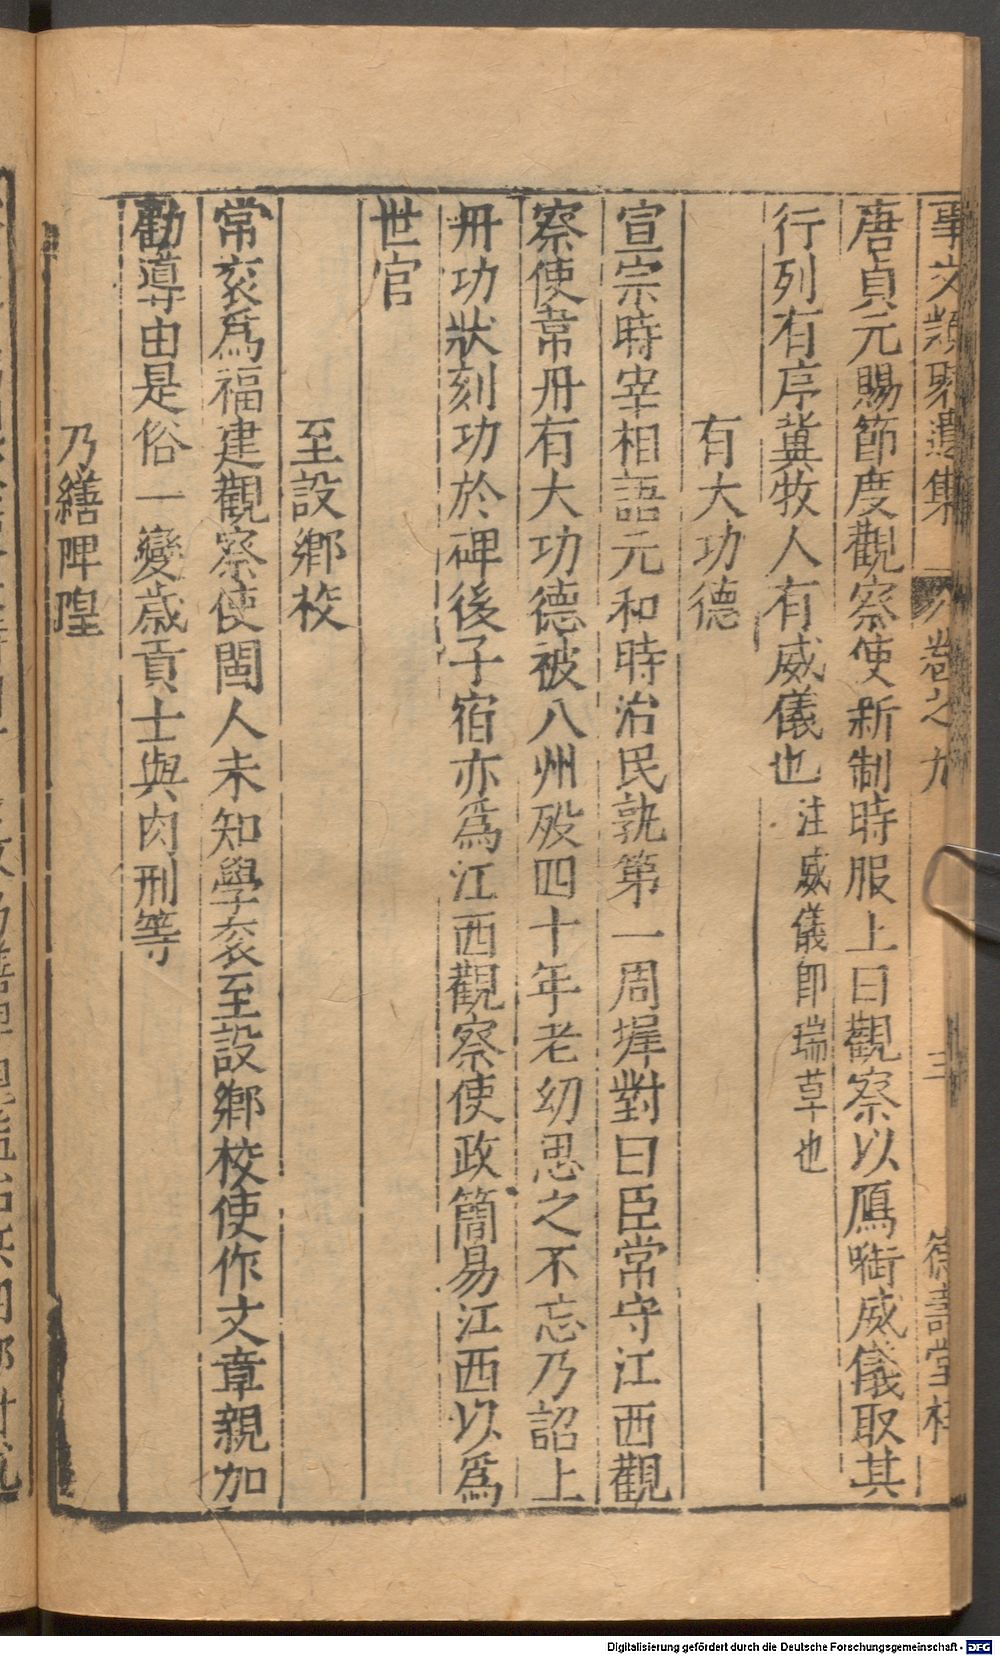 事文類聚遺集 卷之九 三
唐貞元賜節度觀察使新制時服上曰觀察以鴈啣威儀取其
行列有序冀牧人有威儀也 注威儀即瑞草也
有大功德
宣宗時宰相語元和時治民孰第一周墀對曰臣常守江西觀
察使韋丹有大功德被八州殁四十年老幼思之不忘乃詔上
丹功狀刻功於碑後子宿亦爲江西觀察使政簡易江西以爲
世官
至設鄉校
常袞爲福建觀察使閩人未知學袞至設鄉校使作文章親加
勸導由是俗一變歳貢士與内刑等
乃繕陴隍
Digitalisierung gefördert durch die Deutsche Forschungsgemeinschaft - DFG